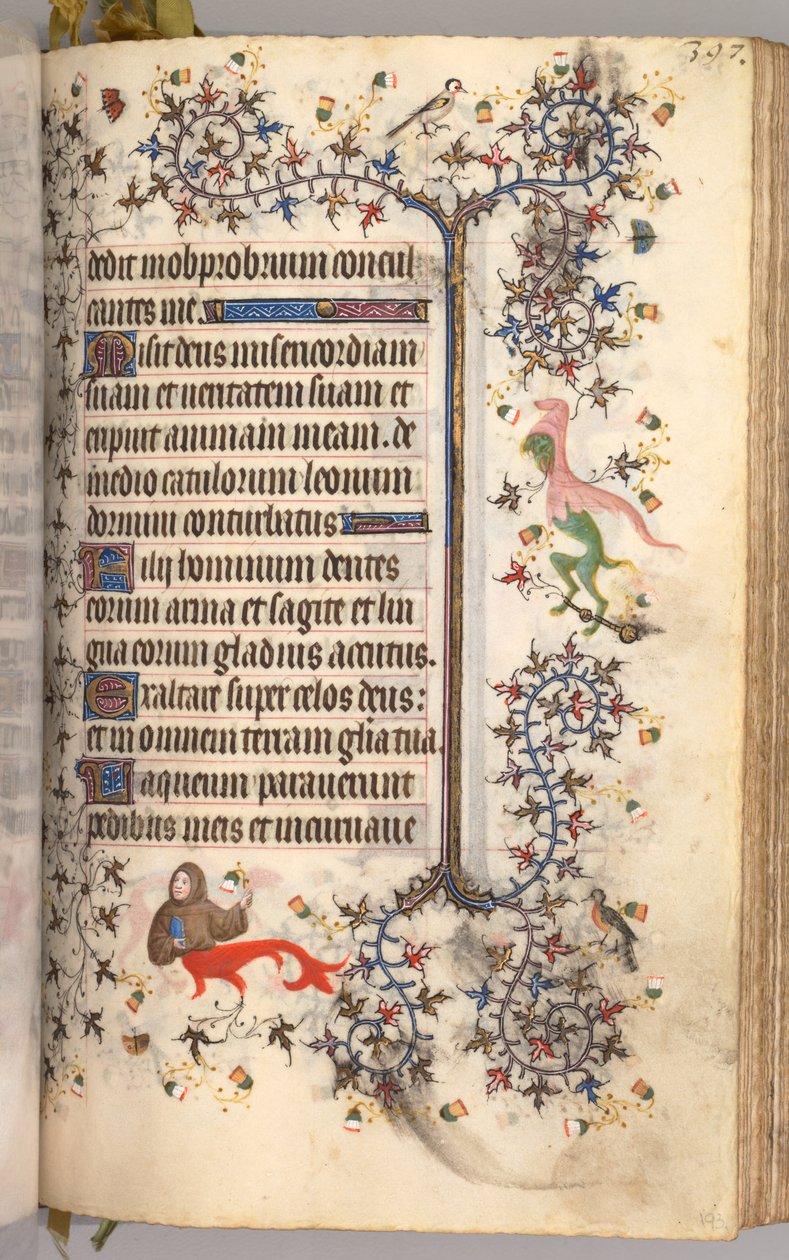 397.
dedit in obprobrium concul
cantes me.
Misit deus misericordiam
suam et ueritatem suam et
eripuit animam meam. de
medio catulorum leonum
dormiui conturbatus
Filij hominum dentes
eorum arma et sagite et lin
gua eorum gladius accutus.
Exaltare super celos deus:
et in omnem terram gl̃ia tua.
Laqueum parauerunt
pedibus meis et incuruaue
193